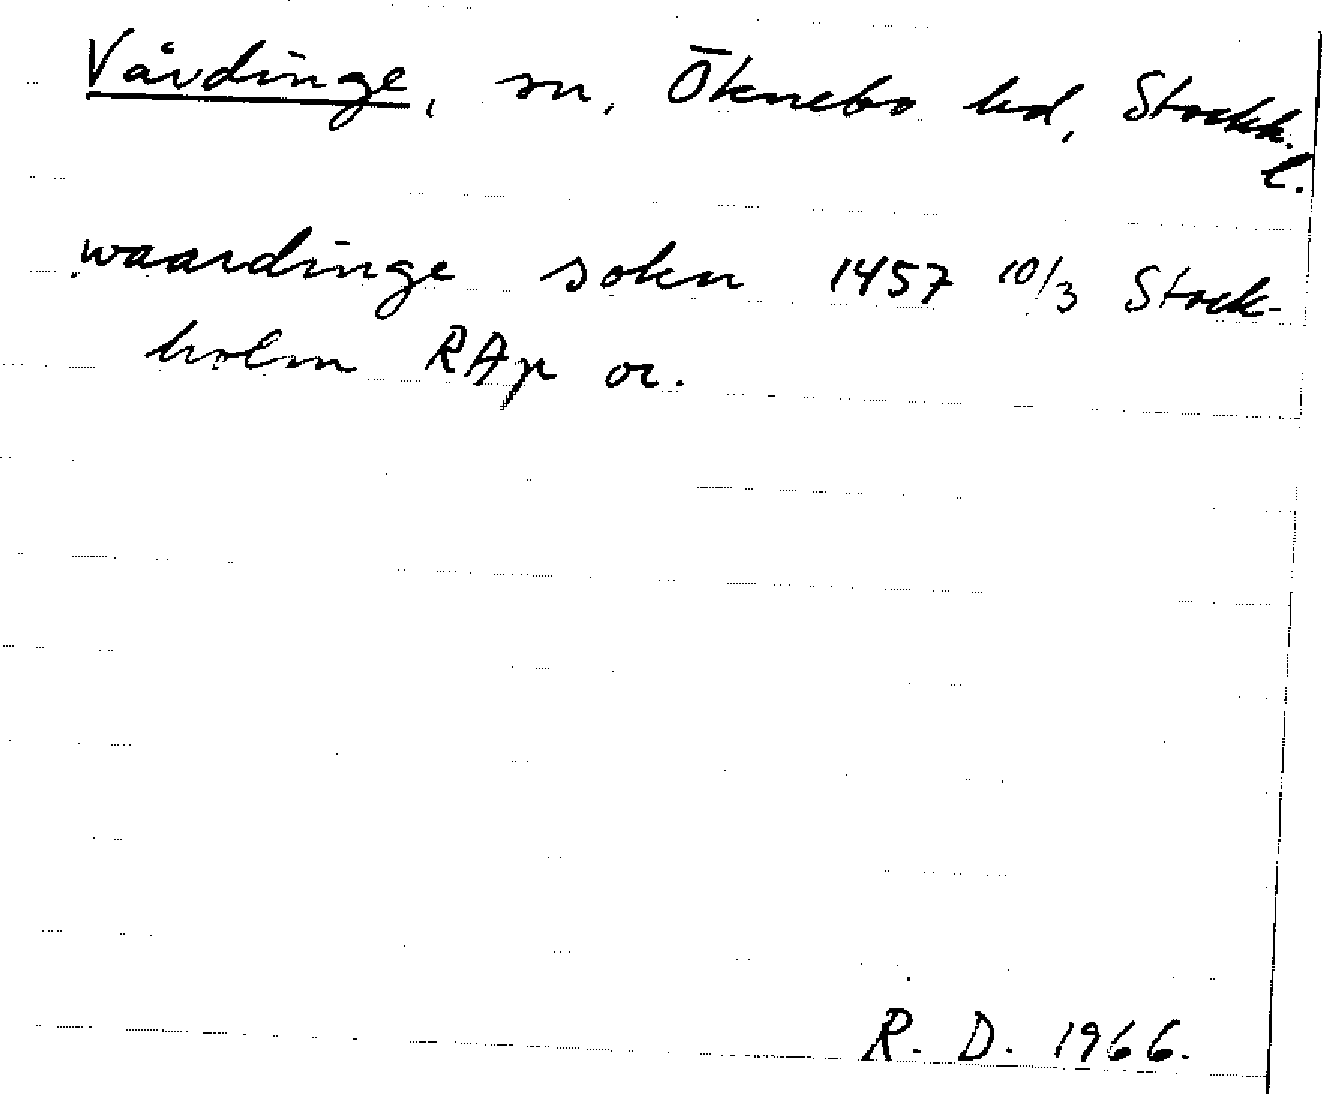 Vårdinge, sn, Öknebo hd, Stockh.
l.
waardinge sokn 1457 10/3 Stock-
holm RAp or.
R. D. 1966.